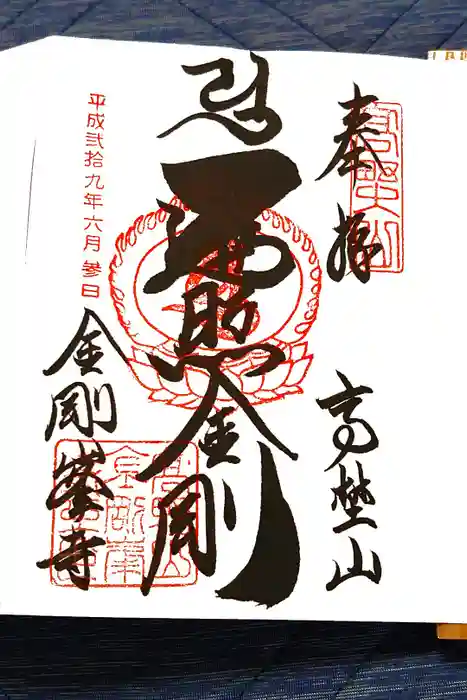 奉拝
高野山
遍照金剛
平成弐拾九年六月参日
金剛峯寺